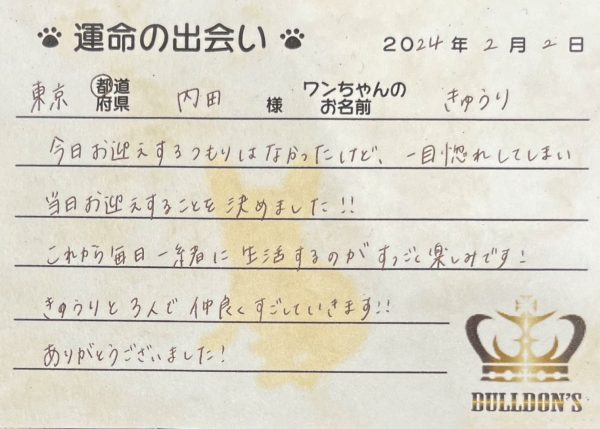 運命の出会い
2024年2月2日
東京 都道府県 内田 様 ワンちゃんのお名前 きゅうり
今日お迎えするつもりはなかったけど、一目惚れしてしまい
当日お迎えすることを決めました!!
これから毎日一緒に生活するのがすっごく楽しみです!
きゅうりと3人で仲良くすごしていきます!!
ありがとうございました!
BULLDON'S